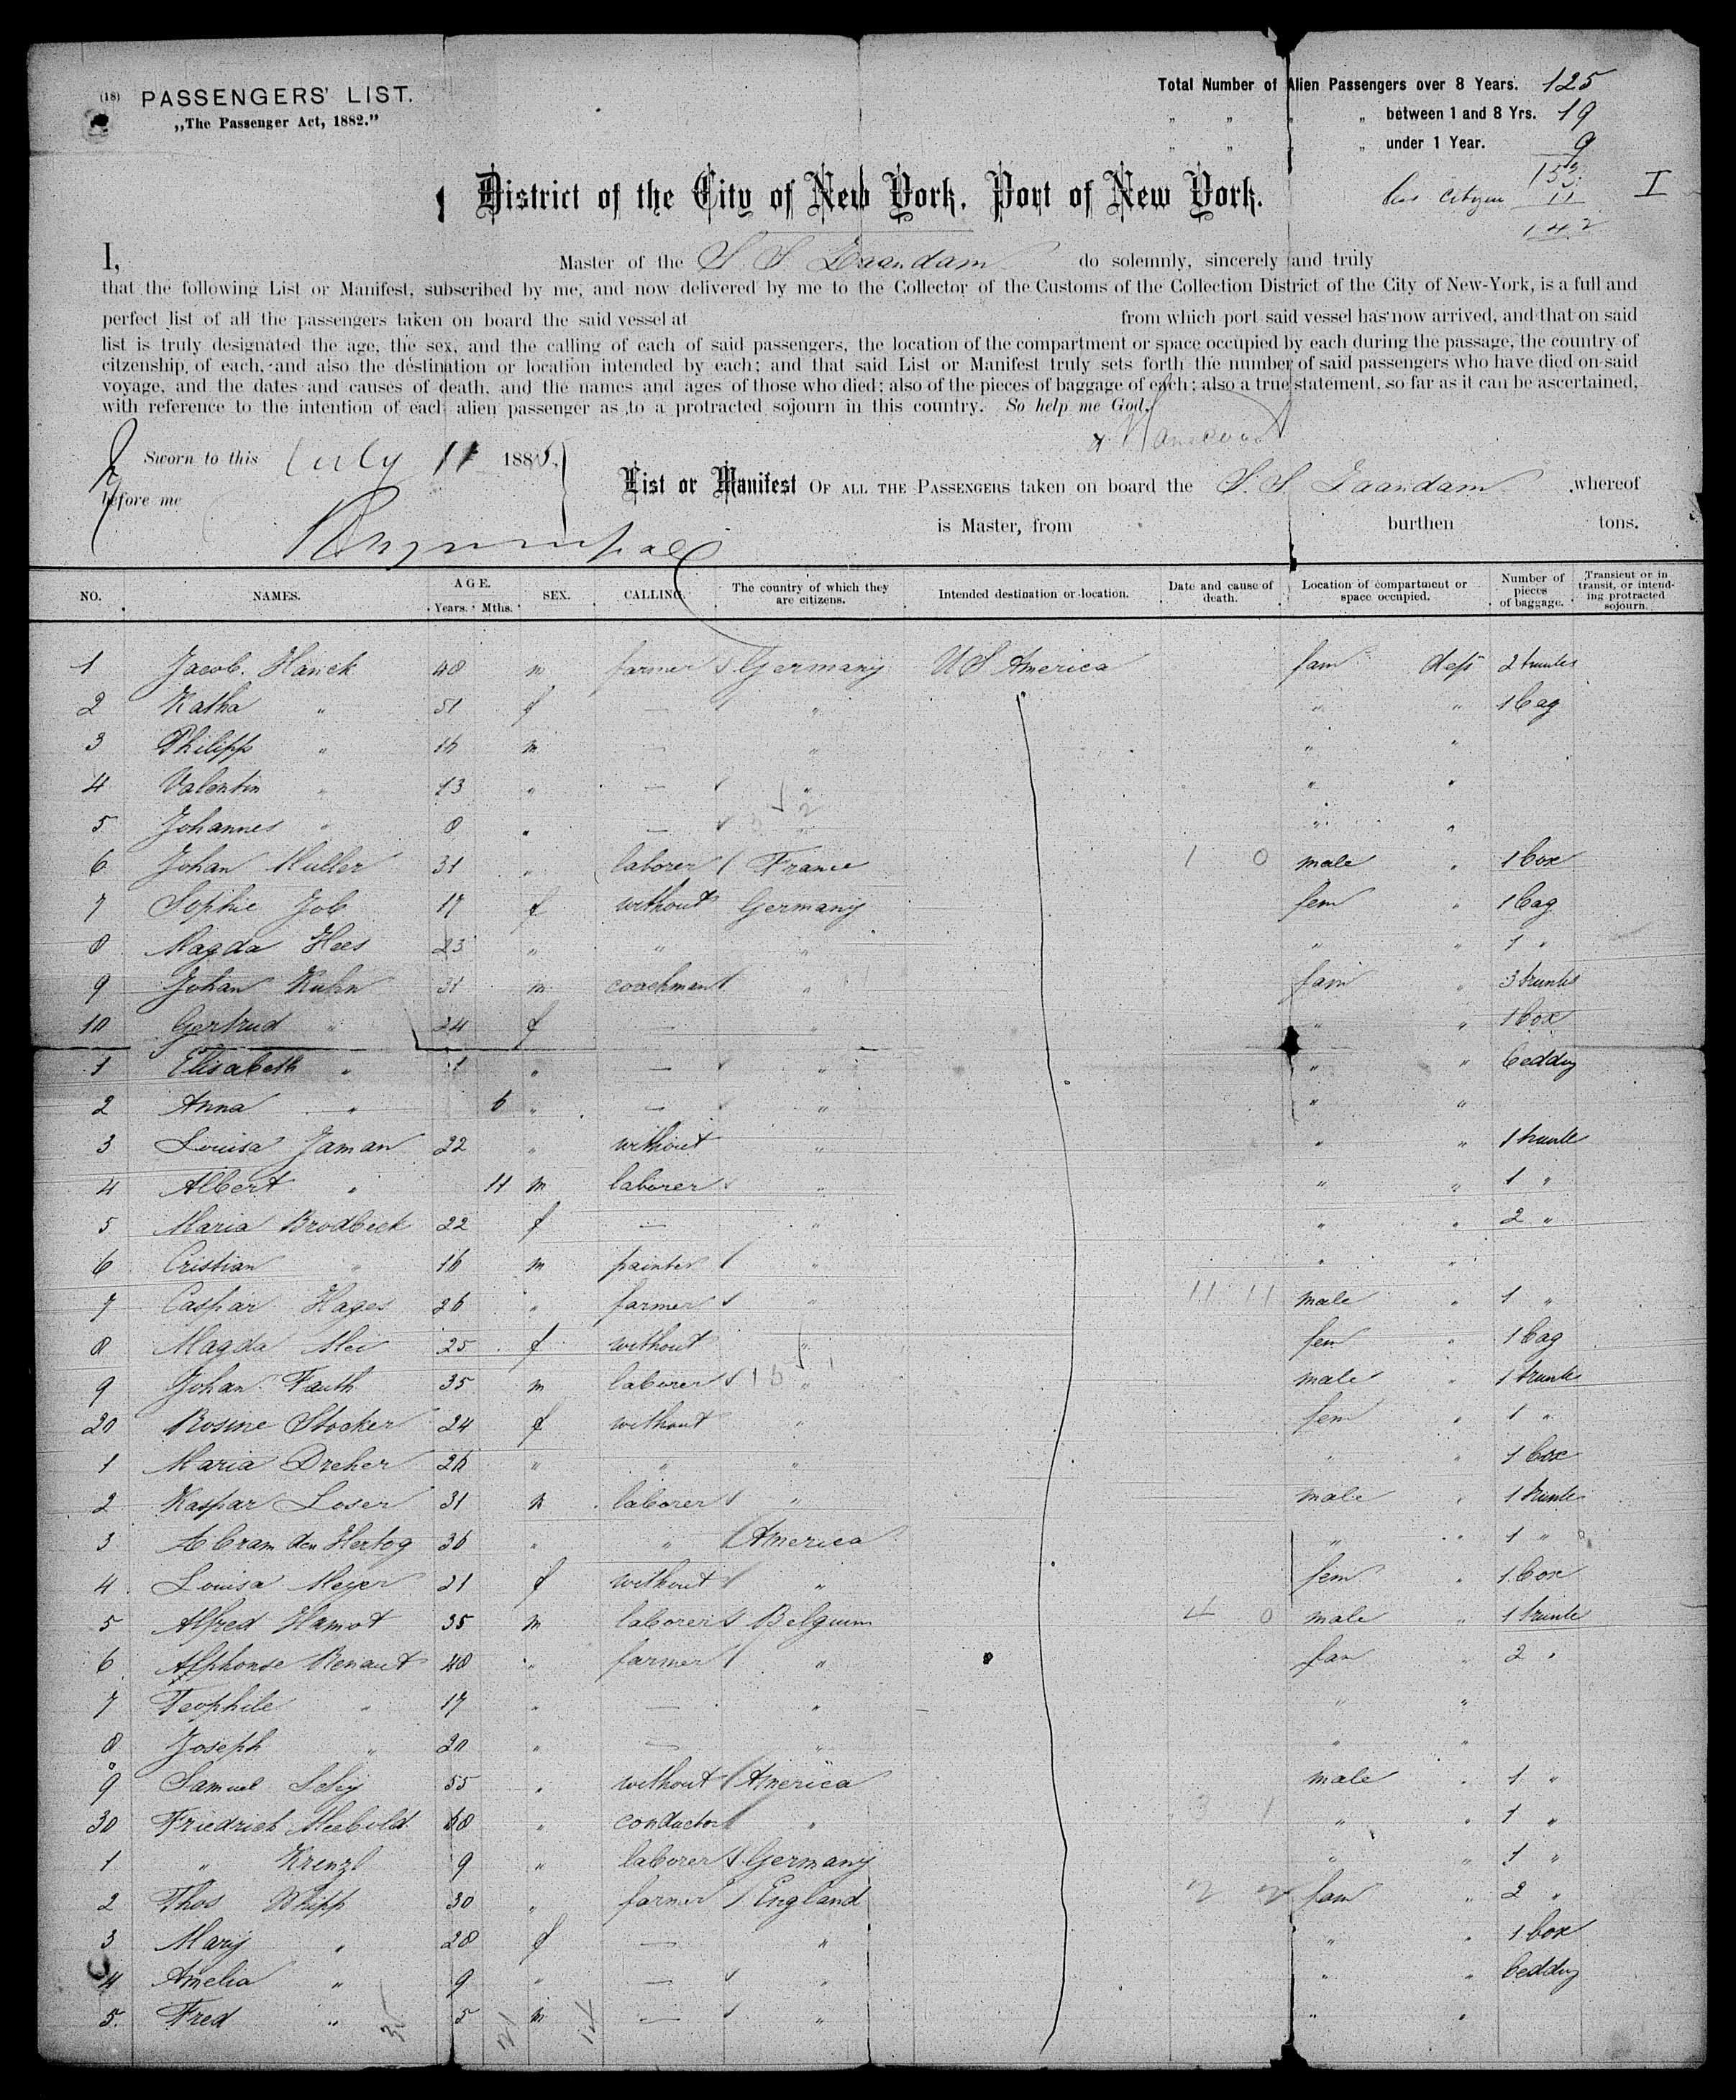 (18) PASSENGERS' LIST.
„The Passenger Act, 1882."
Total Number of Alien Passengers over 8 Years. 125
„ „ „ „ between 1 and 8 Yrs. 19
„ „ „ „ under 1 Year. 9
153
citizen 11
142
I
District of the City of New York, Port of New York.
I, Master of the S. S. Zaandam do solemnly, sincerely and truly
that the following List or Manifest, subscribed by me, and now delivered by me to the Collector of the Customs of the Collection District of the City of New-York, is a full and
perfect list of all the passengers taken on board the said vessel at from which port said vessel has now arrived, and that on said
list is truly designated the age, the sex, and the calling of each of said passengers, the location of the compartment or space occupied by each during the passage, the country of
citzenship of each, and also the destination or location intended by each; and that said List or Manifest truly sets forth the number of said passengers who have died on said
voyage, and the dates and causes of death, and the names and ages of those who died; also of the pieces of baggage of each; also a true statement, so far as it can be ascertained,
with reference to the intention of each alien passenger as to a protracted sojourn in this country. So help me God.
Sworn to this July 11 188
before me
List or Manifest OF ALL THE PASSENGERS taken on board the S. S. Zaandam whereof
is Master, from burthen tons.
NO. NAMES. AGE. Years. Mths. SEX. CALLING. The country of which they are citizens. Intended destination or location. Date and cause of death. Location of compartment or space occupied. Number of pieces of baggage. Transient or in transit, or intending protracted sojourn.
1 Jacob Hanck 48 m farmer Germany U S America fam deps 2 trunks
2 Katha " 51 f — " " " 1 bag
3 Philipp " 16 m — " " "
4 Valentin " 13 " — " " "
5 Johannes " 8 " — " " "
6 Johan Muller 31 " laborer France 1 0 male " 1 box
7 Sophie Job 17 f without Germany fem " 1 bag
8 Magda Hees 23 " " " " " 1 "
9 Johan Kuhn 31 m coachman " fam " 3 trunks
10 Gertrud " 24 f — " " " 1 box
1 Elisabeth " 1 " — " " " bedding
2 Anna " 6 " — " " "
3 Louisa Jaman 22 " without " " " 1 trunk
4 Albert " 11 m laborer " " " 1 "
5 Maria Brodbeck 22 f — " " " 2 "
6 Cristian " 16 m painter " " "
7 Caspar Hages 26 " farmer " 11 11 male " 1 "
8 Magda Mei 25 f without " fem " 1 bag
9 Johan Fauth 35 m laborer " male " 1 trunk
20 Rosine Stocker 24 f without " fem " 1 "
1 Maria Dreher 26 " " " " " 1 box
2 Kaspar Loser 31 m laborer " male " 1 trunk
3 Abram den Hertog 36 " " America " " 1 "
4 Louisa Meyer 21 f without " fem " 1 box
5 Alfred Hamot 35 m laborer Belgium 4 0 male " 1 trunk
6 Alphonse Renaut 48 " farmer " fam " 2 "
7 Teophile " 17 " — " " "
8 Joseph " 20 " — " " "
9 Samuel 55 " without America male " 1 "
30 Friedrich Meebold 68 " conductor " 3 1 " " 1 "
1 " Krenzl 9 " laborer Germany " " 1 "
2 Thos Whipp 30 " farmer England 2 2 fam " 2 "
3 Mary " 28 f — " " " 1 box
4 Amelia " 9 " — " " " bedding
5. Fred " 5 m — " " "
35 21 14